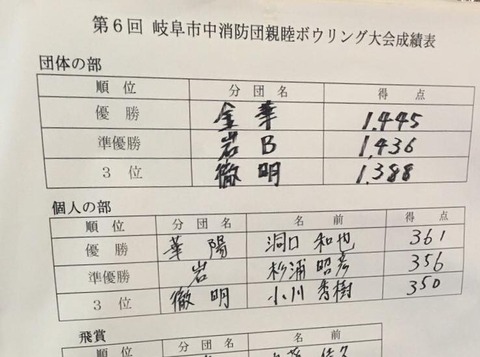 第6回 岐阜市中消防団親睦ボウリング大会成績表
団体の部
順位 分団名 得点
優勝 金華 1,445
準優勝 岩B 1,436
3位 徹明 1,388
個人の部
順位 分団名 名前 得点
優勝 華陽 洞口和也 361
準優勝 岩 杉浦昭彦 356
3位 徹明 小川秀樹 350
飛賞
順位 分団名 名前